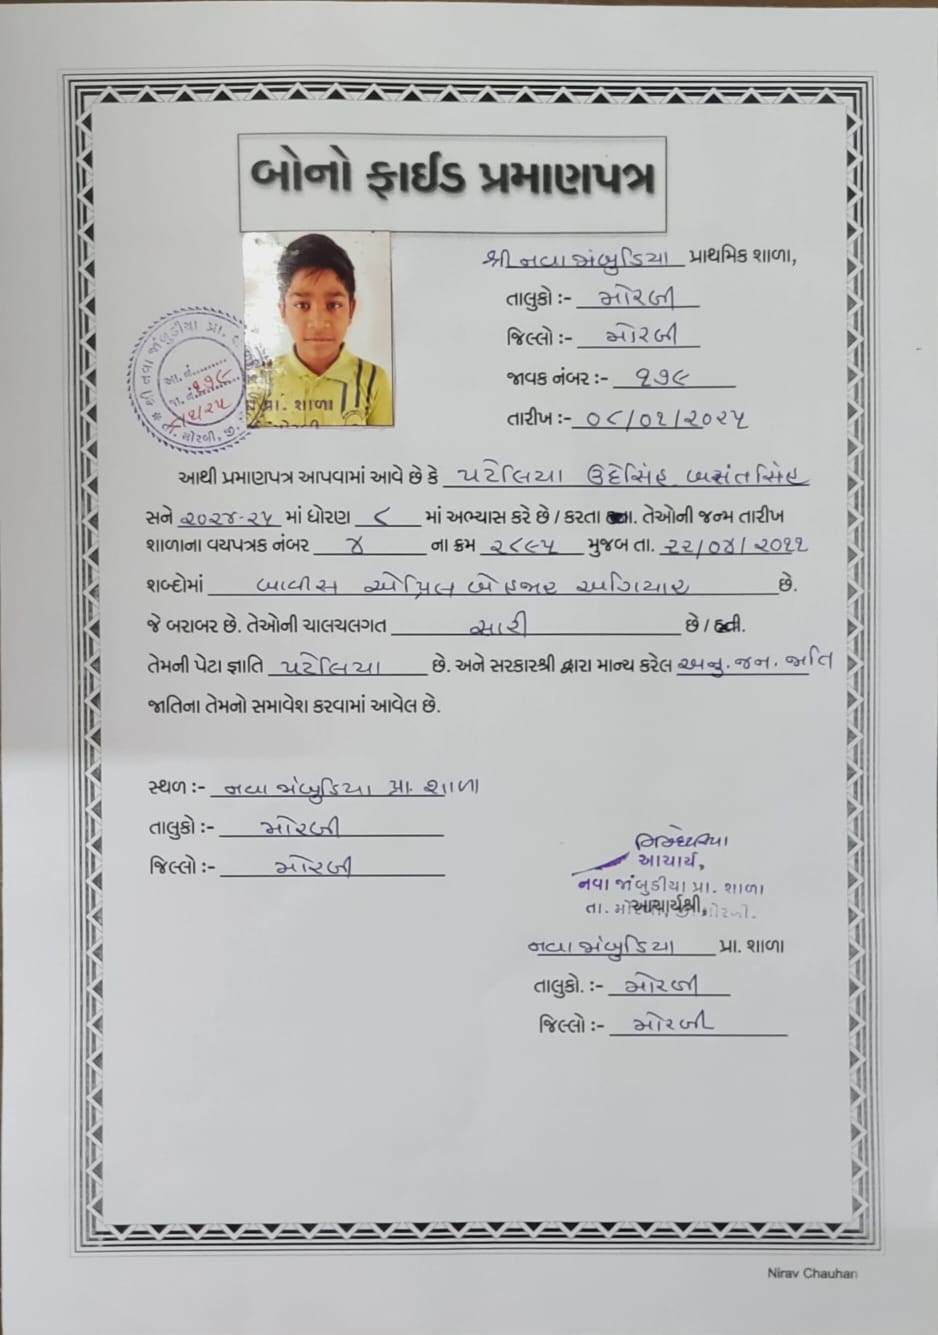 બોનો ફાઈડ પ્રમાણપત્ર
શ્રી નવા જાંબુડિયા પ્રાથમિક શાળા,
તાલુકો :- મોરબી
જિલ્લો :- મોરબી
જાવક નંબર :- ૧૭૯
તારીખ :- ૦૮/૦૧/૨૦૨૫
શ્રી નવા જાંબુડીયા પ્રા.
આ. નં.
જા. નં. ૧૭૯
તા. મોરબી, જી.
પ્રા. શાળા
આથી પ્રમાણપત્ર આપવામાં આવે છે કે પટેલિયા ઉદેસિંહ બસંતસિંહ
સને ૨૦૨૪-૨૫ માં ધોરણ ૮ માં અભ્યાસ કરે છે / કરતા હતા. તેઓની જન્મ તારીખ
શાળાના વયપત્રક નંબર ૪ ના ક્રમ ૨૮૯૫ મુજબ તા. ૨૨/૦૪/૨૦૧૧
શબ્દોમાં બાવીસ એપ્રિલ બે હજાર અગિયાર છે.
જે બરાબર છે. તેઓની ચાલચલગત સારી છે / હતી.
તેમની પેટા જ્ઞાતિ પટેલિયા છે. અને સરકારશ્રી દ્વારા માન્ય કરેલ અનુ. જન. જાતિ
જાતિના તેમનો સમાવેશ કરવામાં આવેલ છે.
સ્થળ :- નવા જાંબુડિયા પ્રા. શાળા
તાલુકો :- મોરબી
જિલ્લો :- મોરબી
આચાર્ય,
નવા જાંબુડીયા પ્રા. શાળા
તા. મોરબી
આચાર્યશ્રી,
નવા જાંબુડિયા પ્રા. શાળા
તાલુકો. :- મોરબી
જિલ્લો :- મોરબી
Nirav Chauhan